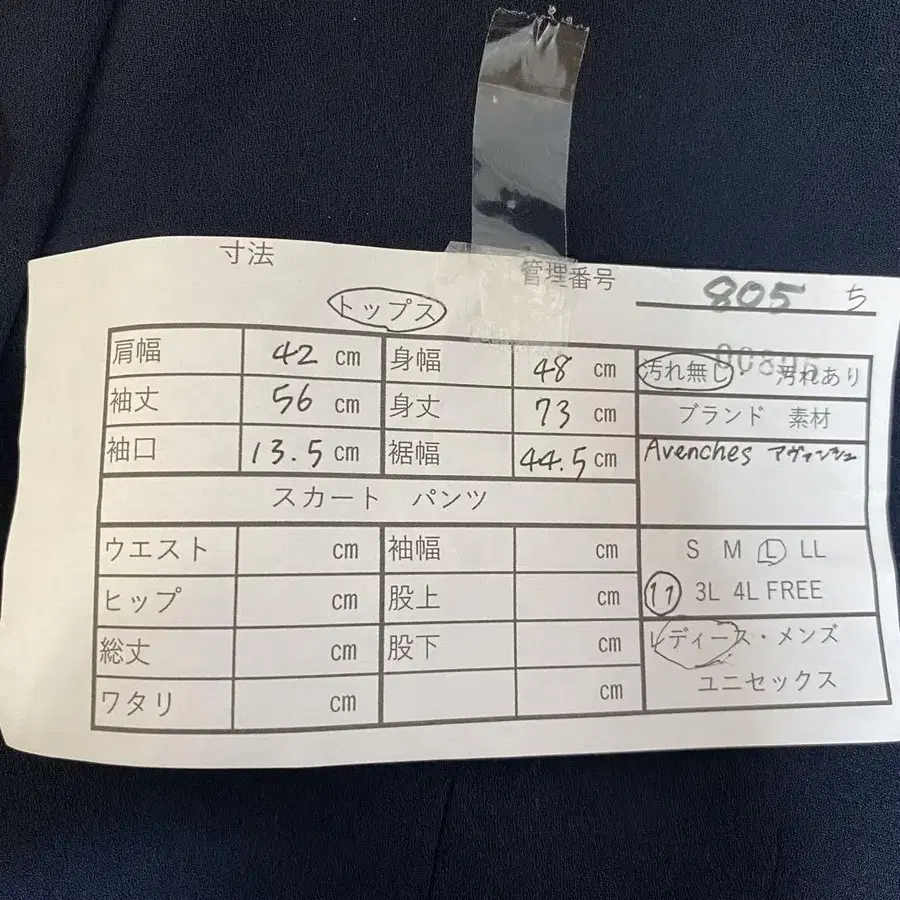 寸法
管理番号 805 ち
トップス
00805
肩幅 42 cm 身幅 48 cm 汚れ無し・汚れあり
袖丈 56 cm 身丈 73 cm ブランド 素材
袖口 13.5 cm 裾幅 44.5 cm Avenches アヴァンシュ
スカート パンツ
ウエスト cm 袖幅 cm S M L LL
ヒップ cm 股上 cm 11 3L 4L FREE
総丈 cm 股下 cm レディース・メンズ
ワタリ cm cm ユニセックス